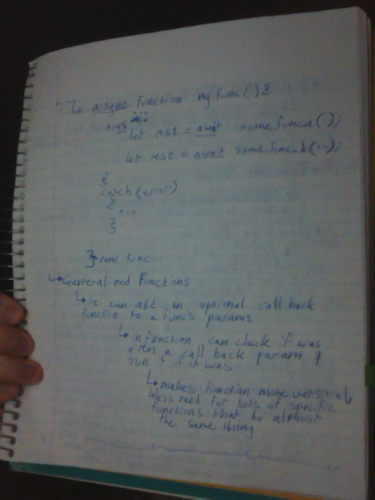 async function myfunc(){
let rest = await somefunca();
let rest = await somefunc_b(...);
}
catch(error)
{ ...
}
} end func
↳ Generalized Functions
↳ ie can add an optional call back
function to a funcs params
↳ in function can check if was
given a call back param &
run it if it was
↳ makes function more versatile
less need for lots of specific
functions that do almost
the same thing